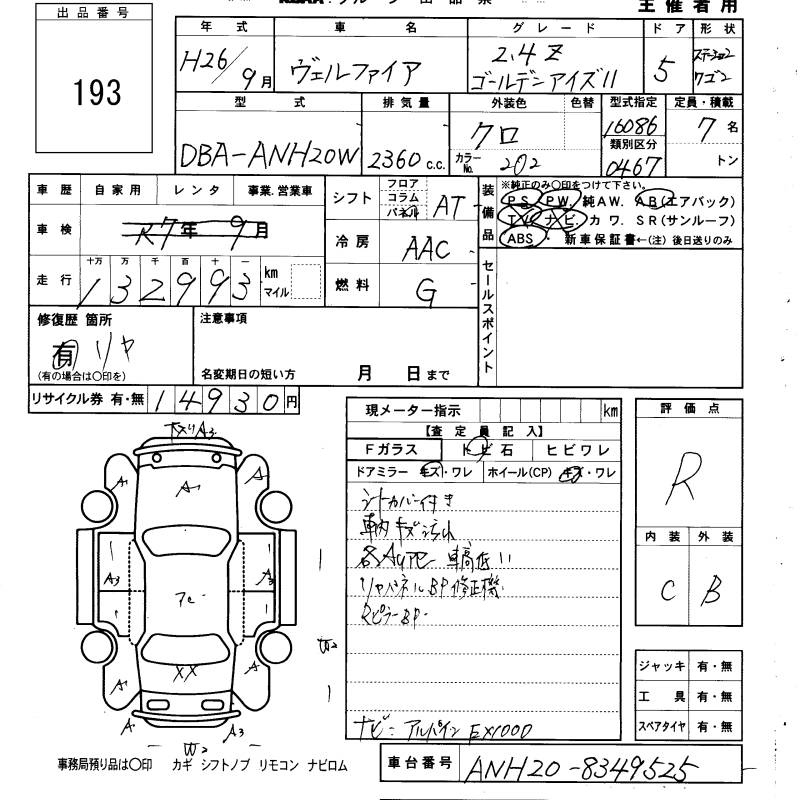 主催者用
出品番号
193
年式 車名 グレード ドア 形状
H26/9月 ヴェルファイア 2.4Z ゴールデンアイズII 5 ステーション ワゴン
型式 排気量 外装色 色替 型式指定 定員・積載
DBA-ANH20W 2360c.c. クロ 16086 7名
カラーNo. 202 類別区分 0467 トン
車歴 自家用 レンタ 事業.営業車
車検 R7年9月
走行 十万 万 千 百 十 一
132993 km マイル
シフト フロア コラム パネル AT
冷房 AAC
燃料 G
装備品 ※純正のみ○印をつけて下さい。
PS. PW. 純AW. AB(エアバック)
TV ナビ カワ. SR(サンルーフ)
ABS・ 新車保証書←(注) 後日送りのみ
セールスポイント
修復歴 箇所
有 リヤ
(有の場合は○印を)
注意事項
名変期日の短い方 月 日まで
リサイクル券 有・無 14930円
現メーター指示 km
【査定員記入】
Fガラス トビ石 ヒビワレ
ドアミラー キズ・ワレ ホイール(CP) キズ・ワレ
シートカバー付き
車内キズ汚れ
各AUPE 車高低い
リヤパネルBP修正機
RピラーBP
ナビ= アルパイン EX1000
評価点
R
内装 外装
C B
ジャッキ 有・無
工具 有・無
スペアタイヤ 有・無
A3
A
A
A
A3
A3
A
A
XX
W2
A
A3
W2
事務局預り品は○印 カギ シフトノブ リモコン ナビロム
車台番号 ANH20-8349525